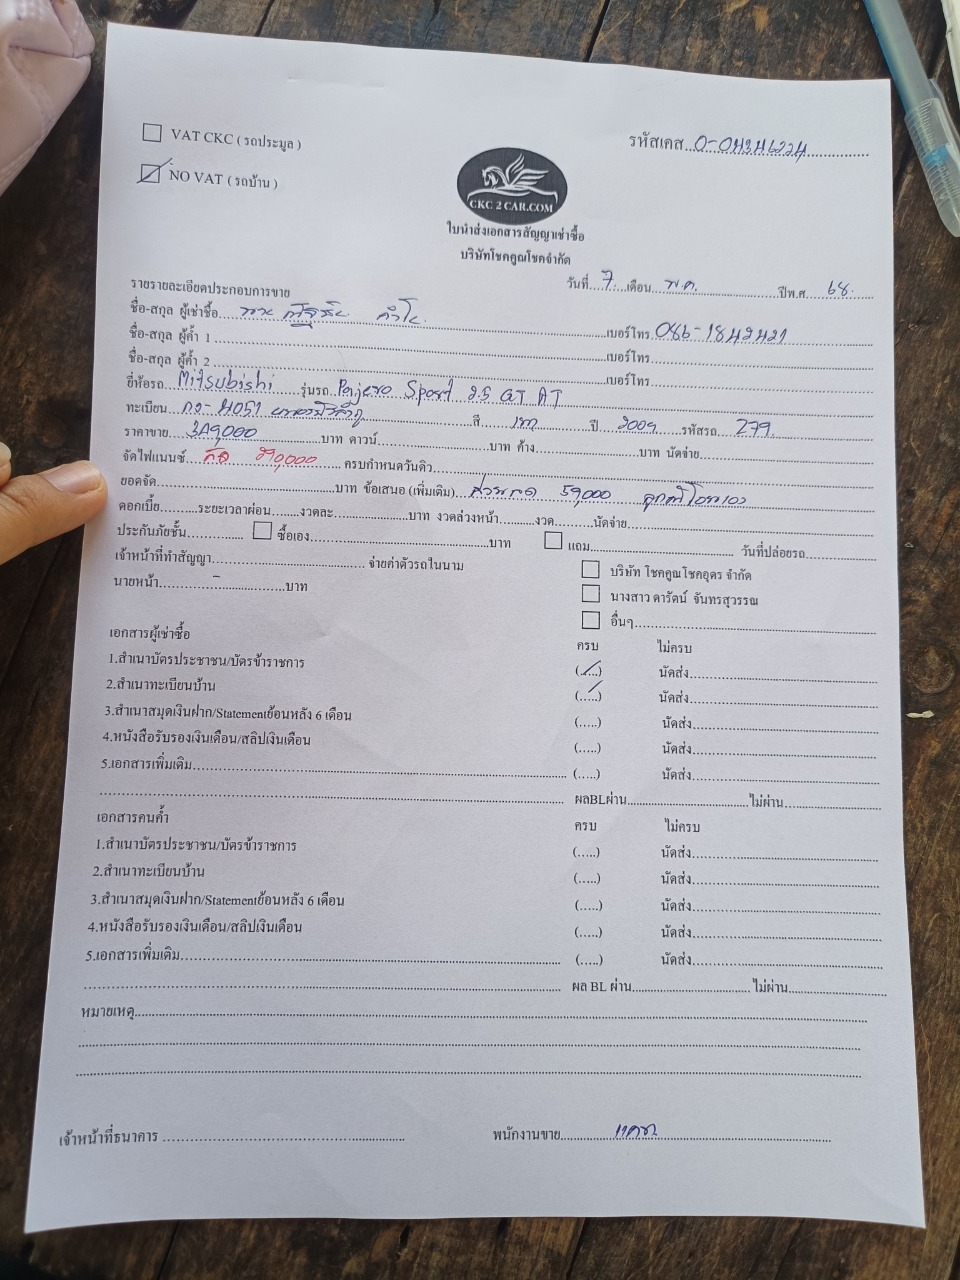 VAT CKC ( รถประมูล )
รหัสเคส
NO VAT ( รถบ้าน )
CKC 2 CAR.COM
ใบนำส่งเอกสารสัญญาเช่าซื้อ
บริษัทโชคคูณโชคจำกัด
วันที่ 7 เดือน พ.ค. ปีพ.ศ. 68
รายรายละเอียดประกอบการขาย
ชื่อ-สกุล ผู้เช่าซื้อ นาย เบอร์โทร
ชื่อ-สกุล ผู้ค้ำ 1 เบอร์โทร
ชื่อ-สกุล ผู้ค้ำ 2 เบอร์โทร
ยี่ห้อรถ Mitsubishi รุ่นรถ Pajero Sport 2.5 GT AT
ทะเบียน สี เทา ปี 2009 รหัสรถ 279
ราคาขาย 349,000 บาท ดาวน์ บาท ค้าง บาท นัดจ่าย
จัดไฟแนนซ์ 290,000 ครบกำหนดวันคิว
ยอดจัด บาท ข้อเสนอ (เพิ่มเติม) ส่วนลด 59,000 ลูกค้าโอนเอง
ดอกเบี้ย ระยะเวลาผ่อน งวดละ บาท งวดล่วงหน้า งวด นัดจ่าย
ประกันภัยชั้น ซื้อเอง บาท แถม วันที่ปล่อยรถ
เจ้าหน้าที่ทำสัญญา จ่ายค่าตัวรถในนาม
บริษัท โชคคูณโชคอุดร จำกัด
นายหน้า - บาท
นางสาว ดารัตน์ จันทรสุวรรณ
อื่นๆ
เอกสารผู้เช่าซื้อ ครบ ไม่ครบ
1.สำเนาบัตรประชาชน/บัตรข้าราชการ (.....) นัดส่ง
2.สำเนาทะเบียนบ้าน (.....) นัดส่ง
3.สำเนาสมุดเงินฝาก/Statementย้อนหลัง 6 เดือน (.....) นัดส่ง
4.หนังสือรับรองเงินเดือน/สลิปเงินเดือน (.....) นัดส่ง
5.เอกสารเพิ่มเติม (.....) นัดส่ง
ผลBLผ่าน ไม่ผ่าน
เอกสารคนค้ำ ครบ ไม่ครบ
1.สำเนาบัตรประชาชน/บัตรข้าราชการ (.....) นัดส่ง
2.สำเนาทะเบียนบ้าน (.....) นัดส่ง
3.สำเนาสมุดเงินฝาก/Statementย้อนหลัง 6 เดือน (.....) นัดส่ง
4.หนังสือรับรองเงินเดือน/สลิปเงินเดือน (.....) นัดส่ง
5.เอกสารเพิ่มเติม (.....) นัดส่ง
ผล BL ผ่าน ไม่ผ่าน
หมายเหตุ
เจ้าหน้าที่ธนาคาร
พนักงานขาย